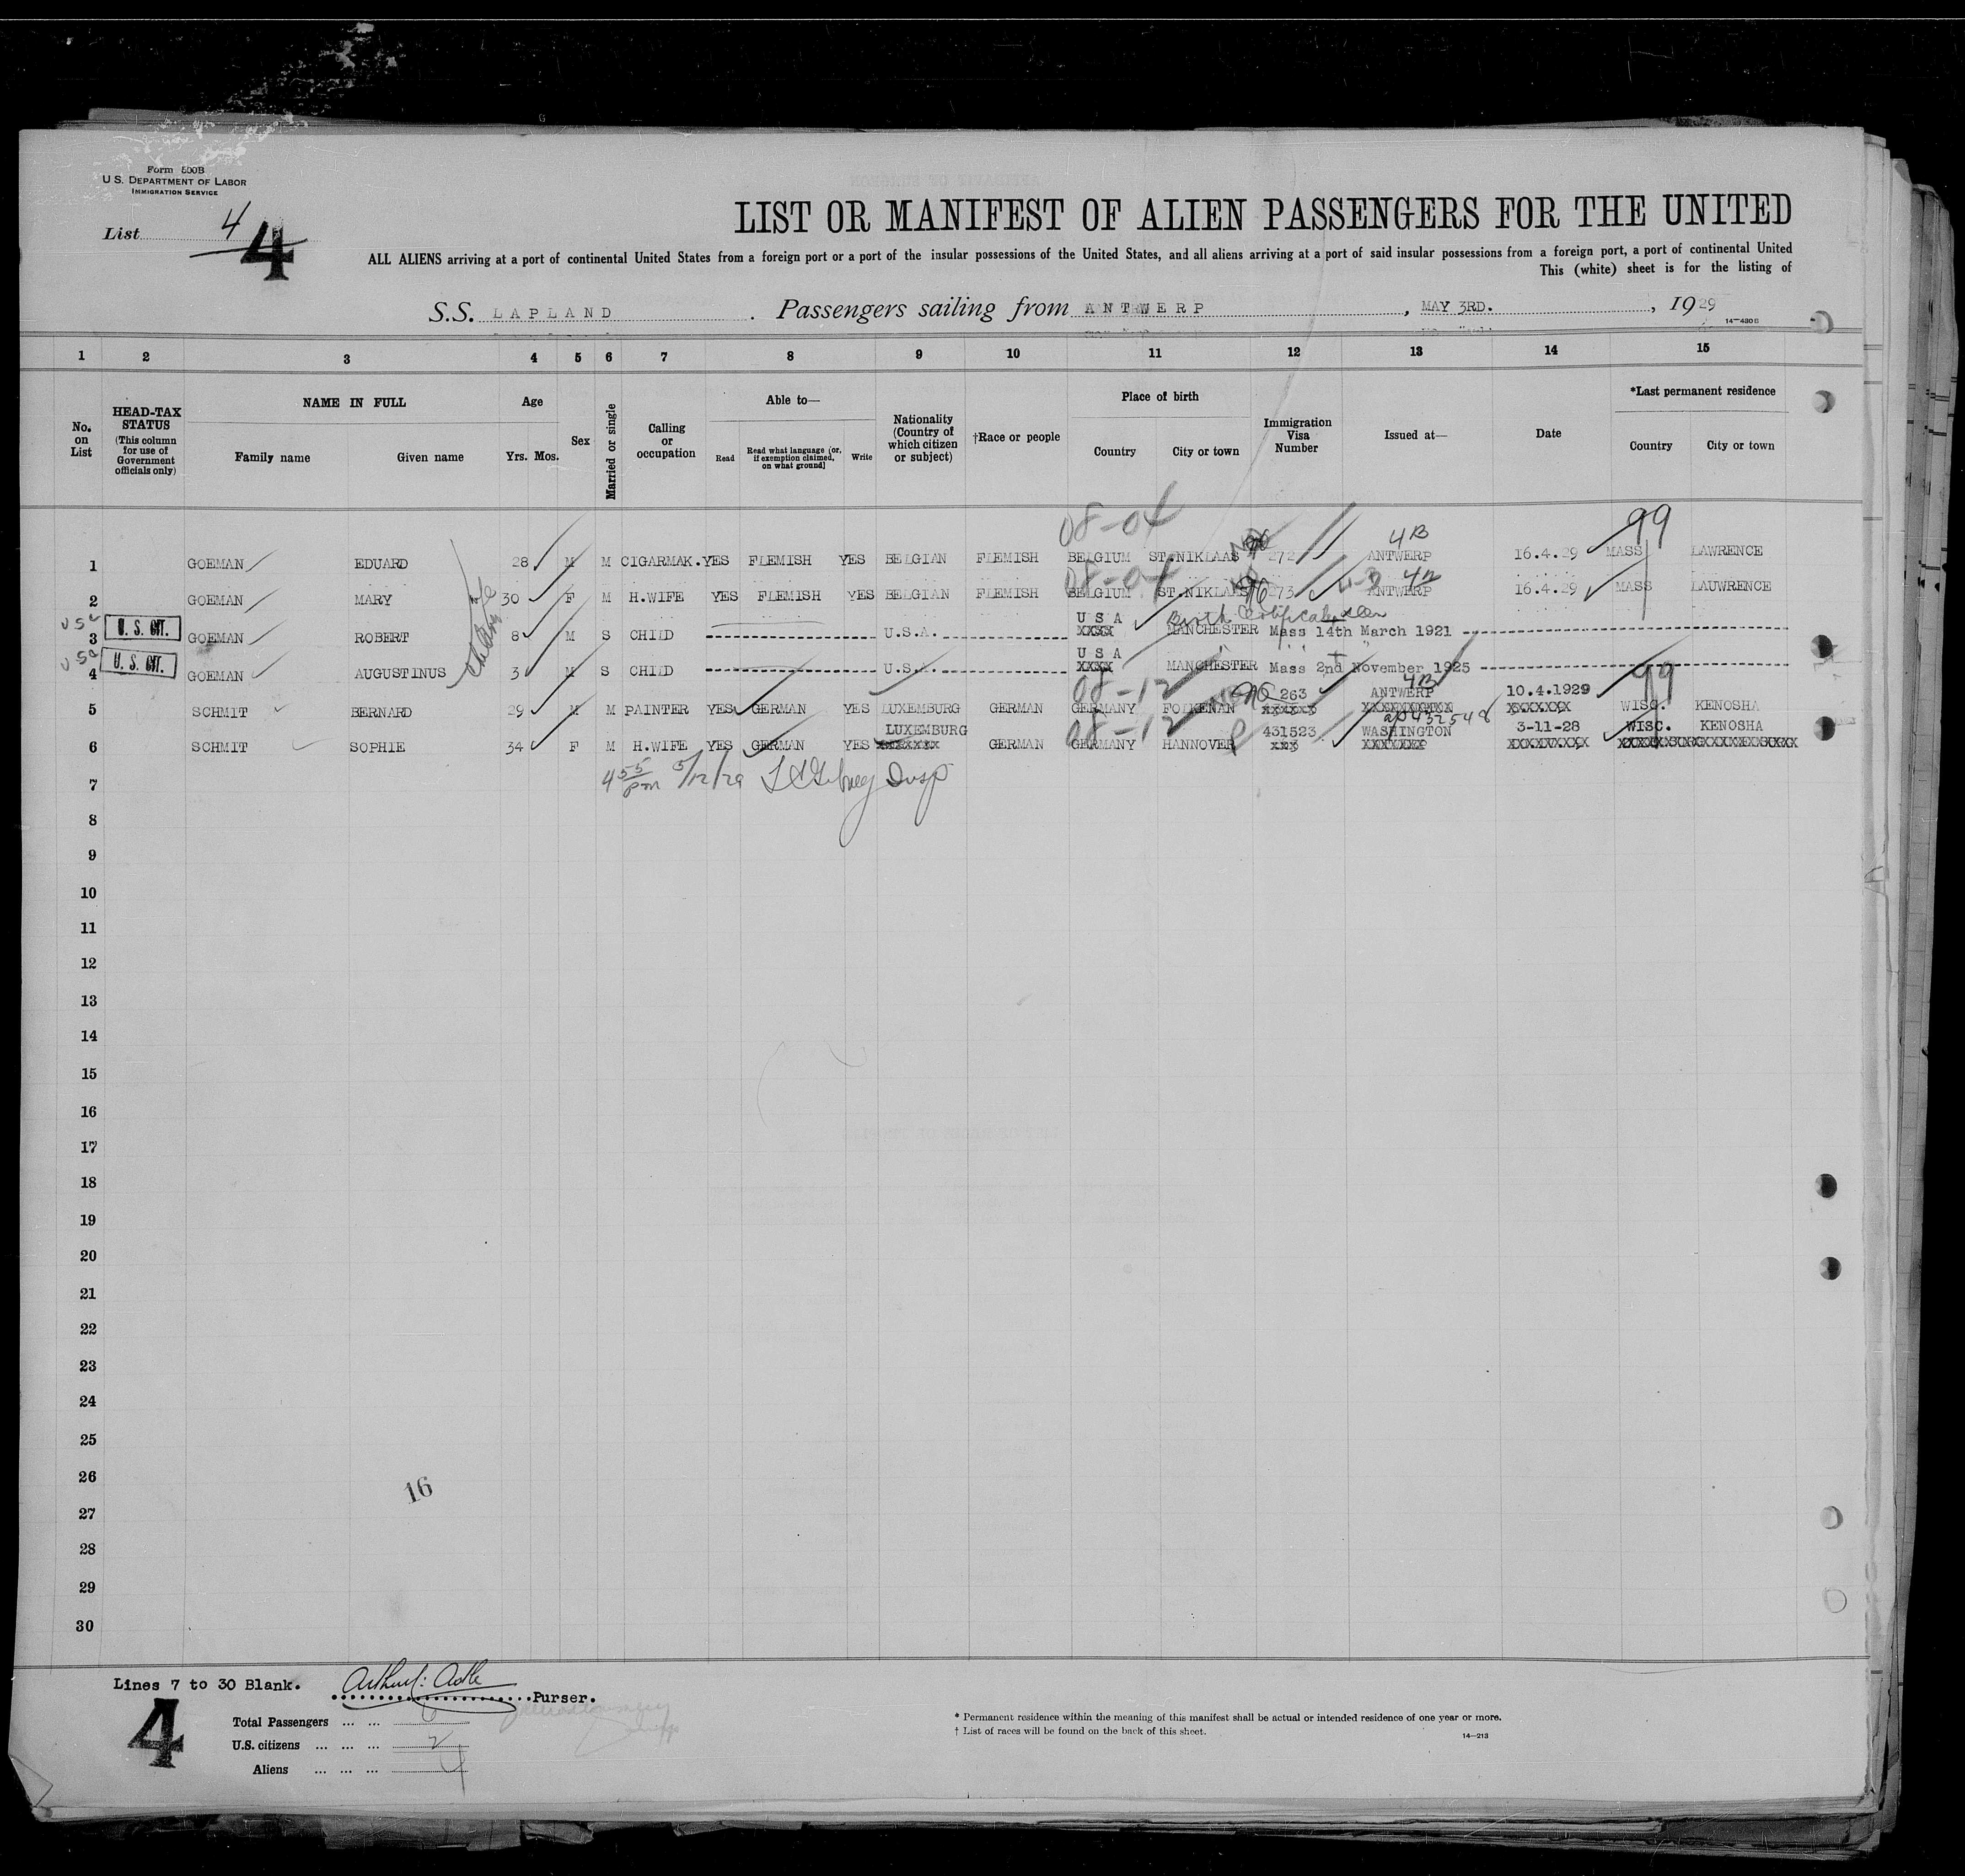 Form 500B
U.S. DEPARTMENT OF LABOR
IMMIGRATION SERVICE
List 4
4
LIST OR MANIFEST OF ALIEN PASSENGERS FOR THE UNITED
ALL ALIENS arriving at a port of continental United States from a foreign port or a port of the insular possessions of the United States, and all aliens arriving at a port of said insular possessions from a foreign port, a port of continental United
This (white) sheet is for the listing of
S.S. LAPLAND . Passengers sailing from ANTWERP , MAY 3RD. , 1929
14—430B
1 2 3 4 5 6 7 8 9 10 11 12 13 14 15
No. on List
HEAD-TAX STATUS (This column for use of Government officials only)
NAME IN FULL
Family name Given name
Age
Yrs. Mos.
Sex
Married or single
Calling or occupation
Able to—
Read
Read what language (or, if exemption claimed, on what ground)
Write
Nationality (Country of which citizen or subject)
†Race or people
Place of birth
Country City or town
Immigration Visa Number
Issued at—
Date
*Last permanent residence
Country City or town
08-04 4B 99
1 GOEMAN EDUARD 28 M M CIGARMAK. YES FLEMISH YES BELGIAN FLEMISH BELGIUM ST.NIKLAAS 272 ANTWERP 16.4.29 MASS LAWRENCE
08-04
2 GOEMAN MARY 30 F M H.WIFE YES FLEMISH YES BELGIAN FLEMISH BELGIUM ST.NIKLAAS 273 ANTWERP 16.4.29 MASS LAUWRENCE
USC U. S. CIT. USA Birth Certificate seen
3 GOEMAN ROBERT 8 M S CHILD U.S.A. XXXX MANCHESTER Mass 14th March 1921
USC U. S. CIT. USA
4 GOEMAN AUGUSTINUS 3 M S CHILD U.S.A. XXXX MANCHESTER Mass 2nd November 1925
08-12 263 ANTWERP 4B 10.4.1929 99
5 SCHMIT BERNARD 29 M M PAINTER YES GERMAN YES LUXEMBURG GERMAN GERMANY FOLKENAN WISC. KENOSHA
LUXEMBURG 08-12 431523 WASHINGTON 3-11-28 WISC. KENOSHA
6 SCHMIT SOPHIE 34 F M H.WIFE YES GERMAN YES GERMAN GERMANY HANNOVER
4 55 pm 5/12/29 Insp
7
8
9
10
11
12
13
14
15
16
17
18
19
20
21
22
23
24
25
26
16
27
28
29
30
Lines 7 to 30 Blank. Purser.
4
Total Passengers ... ... 6
U.S. citizens ... ... ... 2
Aliens ... ... ... 4
* Permanent residence within the meaning of this manifest shall be actual or intended residence of one year or more.
† List of races will be found on the back of this sheet.
14—213